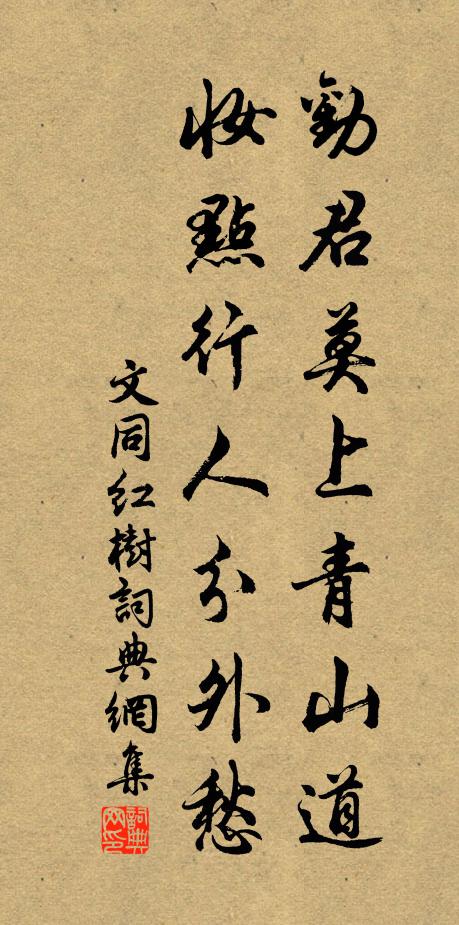 勸君莫上青山道
妝點行人分外愁
文同紅樹詞典網集
詞典网印